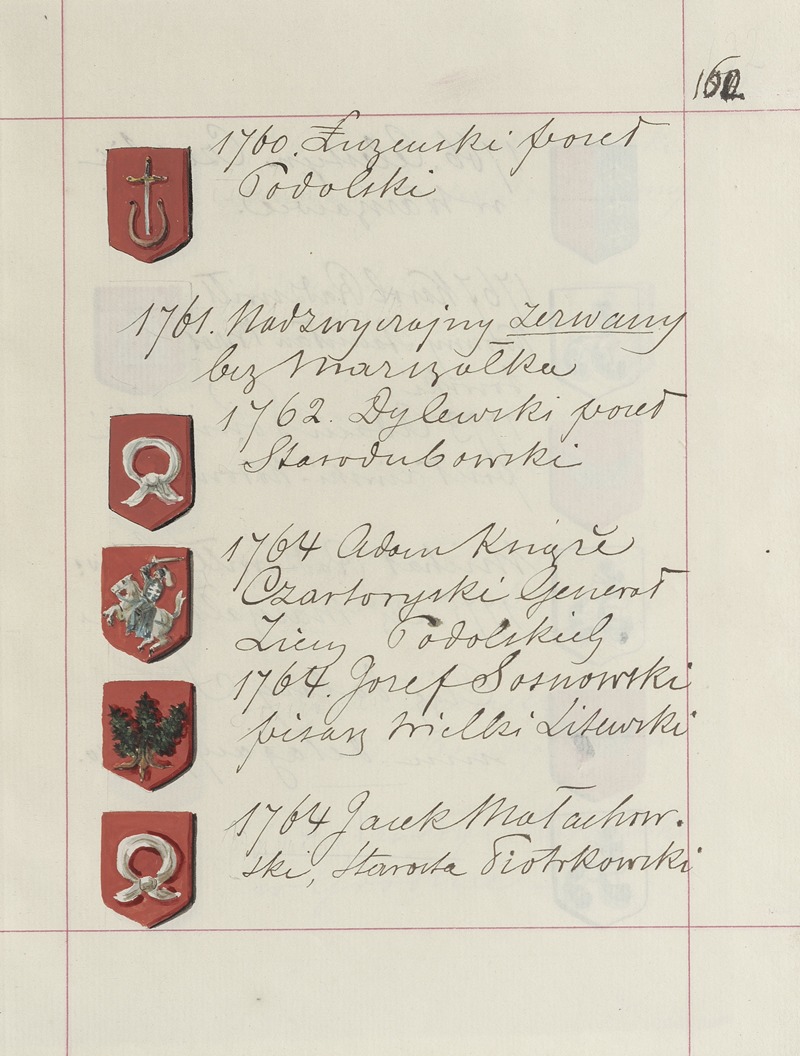 160
1760. Łuzewski poseł
Podolski
1761. Nadzwyczajny zerwany
bez Marszałka
1762. Dylewski poseł
Starodubowski
1764 Adam Książe
Czartoryski Generał
Ziem Podolskich
1764. Jozef Sosnowski
pisarz Wielki Litewski
1764 Jacek Małachow-
ski, Starosta Piotrkowski